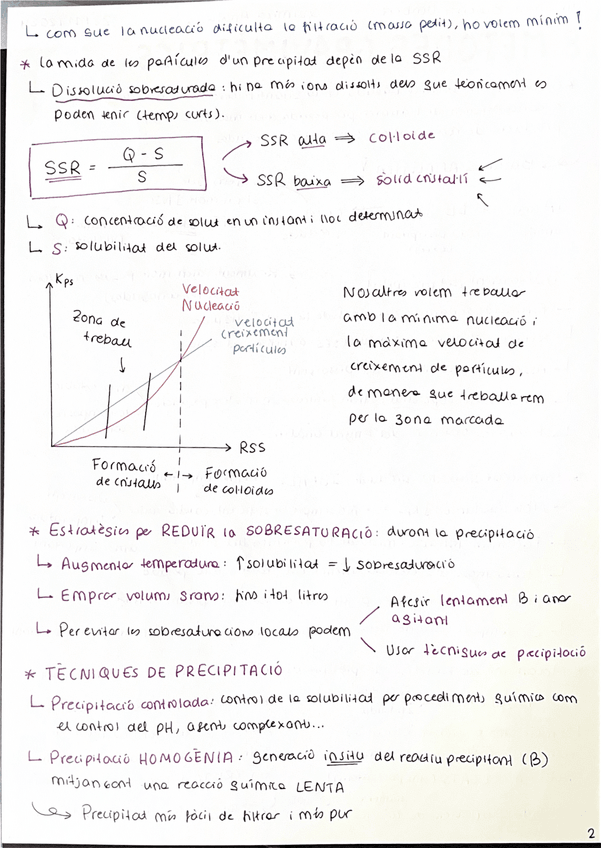 ↳ com sue la nucleació dificulta la filtració (massa petit), ho volem mínim!
* La mida de les partícules d'un precipitat depèn de la SSR
↳ Dissolució sobresaturada: hi ha més ions dissolts dels que teòricament es
poden tenir (temps curts).
SSR = (Q - S) / S
SSR alta ⇒ col·loide
SSR baixa ⇒ sòlid cristal·lí
↳ Q: concentració de solut en un instant i lloc determinat
↳ S: solubilitat del solut.
Kps
Velocitat
Nucleació
Zona de
treball
velocitat
creixement
partícules
RSS
Formació
de cristalls
Formació
de col·loides
Nosaltres volem treballar
amb la mínima nucleació i
la màxima velocitat de
creixement de partícules,
de manera que treballarem
per la zona marcada
* Estratègies per REDUÏR la SOBRESATURACIÓ: durant la precipitació
↳ Augmentar temperatura: ↑ solubilitat = ↓ sobresaturació
↳ Emprar volums grans: fins i tot litres
↳ Per evitar les sobresaturacions locals podem
Afegir lentament B i anar
agitant
Usar tècniques de precipitació
* TÈCNIQUES DE PRECIPITACIÓ
↳ Precipitació controlada: control de la solubilitat per procediments químics com
el control del pH, agents complexants...
↳ Precipitació HOMOGÈNIA: generació insitu del reactiu precipitant (B)
mitjançant una reacció química LENTA
↳ Precipitat més fàcil de filtrar i més pur
2